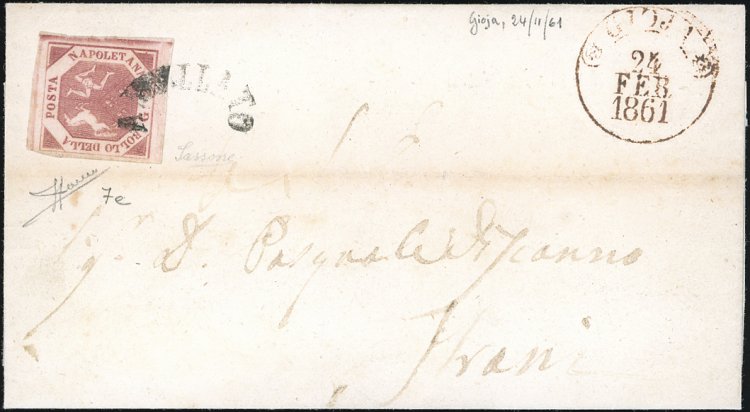 Gioja, 24/11/61
POSTA NAPOLETANA
BOLLO DELLA
G
ANNULLATO
GIOJA
24
FEB
1861
Sassone
7e
Sg. D. Pasquale di Joanno
Trani